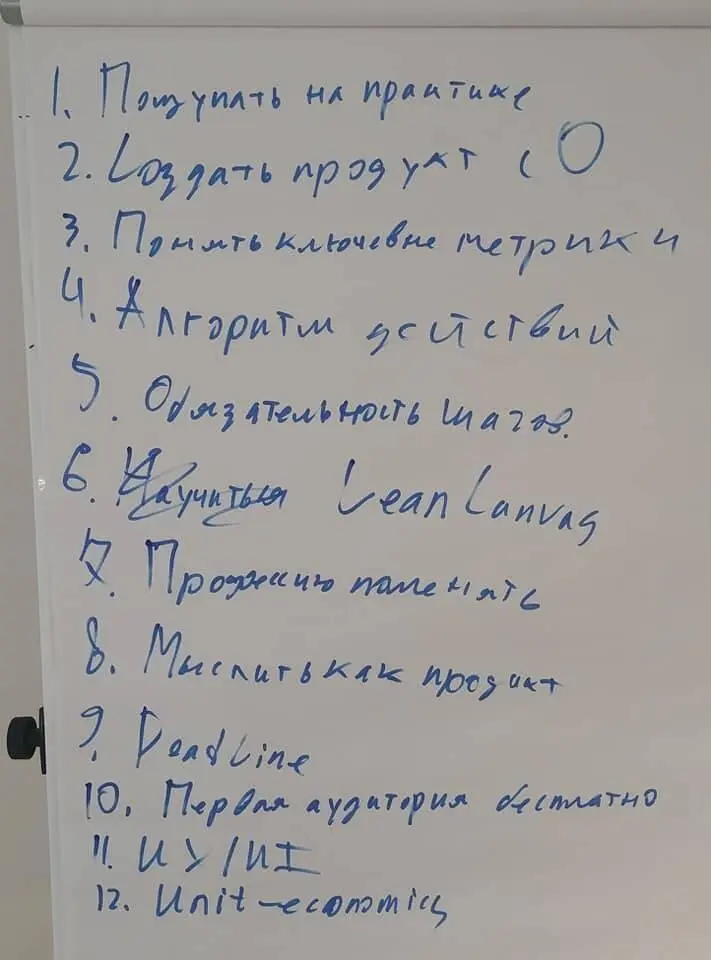 1. Пощупать на практике
2. Создать продукт с 0
3. Понять ключевые метрики
4. Алгоритм действий
5. Обязательность шагов.
6. Научиться Lean Canvas
7. Профессию поменять
8. Мыслить как продукт
9. DeadLine
10. Первая аудитория бесплатно
11. UX/UI
12. Unit-economics